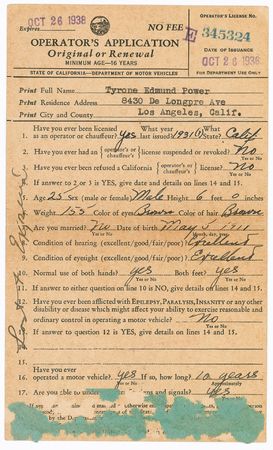 OPERATOR'S LICENSE No.
Expires OCT 26 1938 NO FEE E 345324
OPERATOR'S APPLICATION
Date of Issuance
Original or Renewal
OCT 26 1938
MINIMUM AGE—16 YEARS
STATE OF CALIFORNIA—DEPARTMENT OF MOTOR VEHICLES FOR DEPARTMENT USE ONLY
Print Full Name Tyrone Edmund Power
Print Residence Address 8430 De Longpre Ave
Print City and County Los Angeles, Calif.
1. Have you ever been licensed as an operator or chauffeur? yes What year last issued? 1931 What State? Calif.
2. Have you ever had an { operator's or chauffeur's } license suspended or revoked? No
Yes or No
3. Have you ever been refused a California { operator's or chauffeur's } license? No
Yes or No
4. If answer to 2 or 3 is yes, give date and details on lines 14 and 15.
5. Age 25 Sex (male or female) Male Height 6 feet 0 inches
6. Weight 155 Color of eyes Brown Color of hair Brown
7. Are you married? No Date of birth May 5, 1911
Yes or No Month, day, year
8. Condition of hearing (excellent/good/fair/poor) Excellent
9. Condition of eyesight (excellent/good/fair/poor) Excellent
10. Normal use of both hands? yes Both feet? yes
Yes or No Yes or No
11. If answer to either question in line 10 is NO, give details on lines 14, 15.
12. Have you ever been afflicted with EPILEPSY, PARALYSIS, INSANITY or any other disability or disease which might affect your ability to exercise reasonable and ordinary control in operating a motor vehicle? No
Yes or No
13. If answer to question 12 is YES, give details on lines 14 and 15.
14.
15.
16. Have you ever operated a motor vehicle? yes If so, how long? 10 years
Yes or No Approximately
17. Are you able to and signals? yes